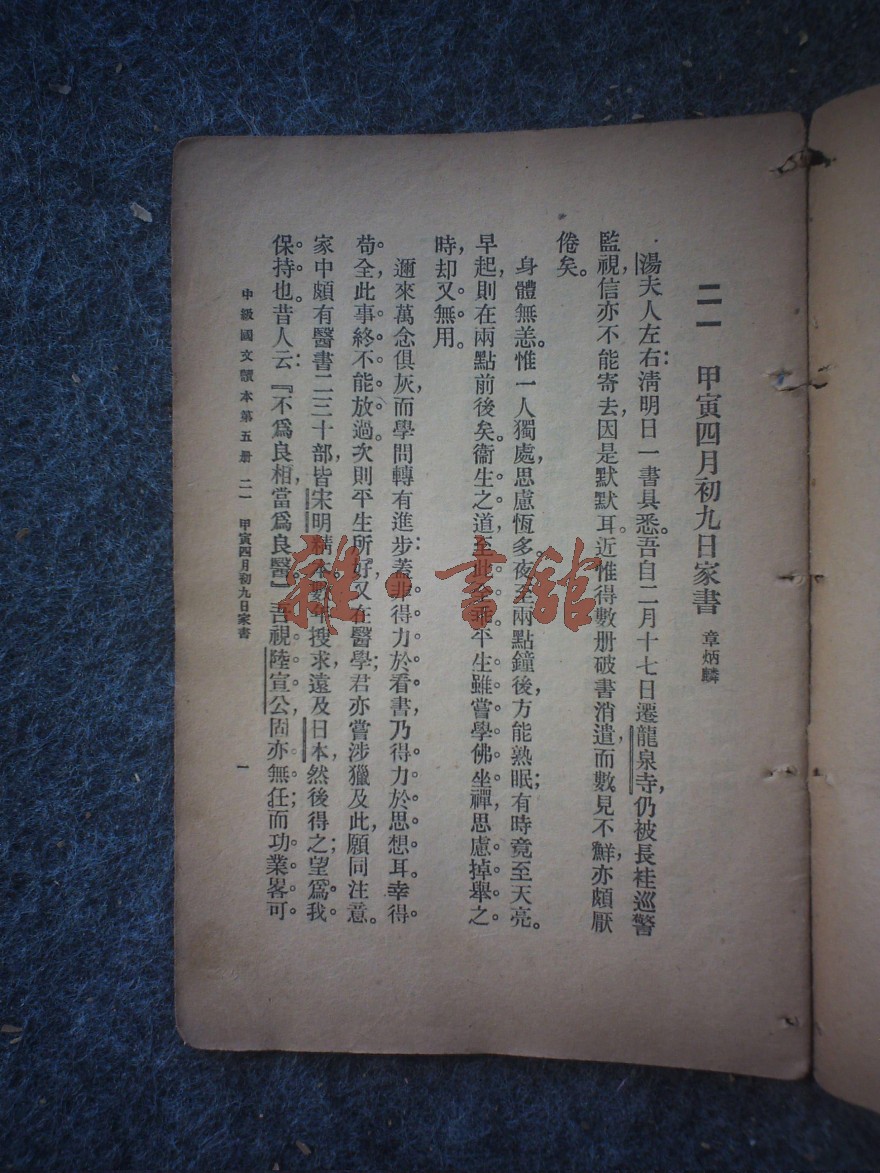 二一 甲寅四月初九日家書 章炳麟
湯夫人左右：清明日一書具悉。吾自二月十七日遷龍泉寺，仍被長袿巡警
監視，信亦不能寄去，因是默默耳。近惟得數册破書消遣，而數見不鮮，亦頗厭
倦矣。
身體無恙。惟一人獨處，思慮恆多。夜至兩點鐘後，方能熟眠；有時竟至天亮。
早起則在兩點前後矣。衞生之道，至此全乖。平生雖嘗學佛坐禪，思慮掉舉之
時，却又無用。
邇來萬念俱灰，而學問轉有進步：蓋非得力於看書，乃得力於思想耳。幸得
苟全，此事終不能放過。次則平生所好，又在醫學；君亦嘗涉獵及此，願同注意。
家中頗有醫書二三十部，皆宋明精本，數年搜求，遠及日本，然後得之；望爲我
保持也。昔人云：『不爲良相，當爲良醫。』吾視陸宣公，固亦無任；而功業畧可
中級國文讀本第五册 二一 甲寅四月初九日家書 一
雜·書館